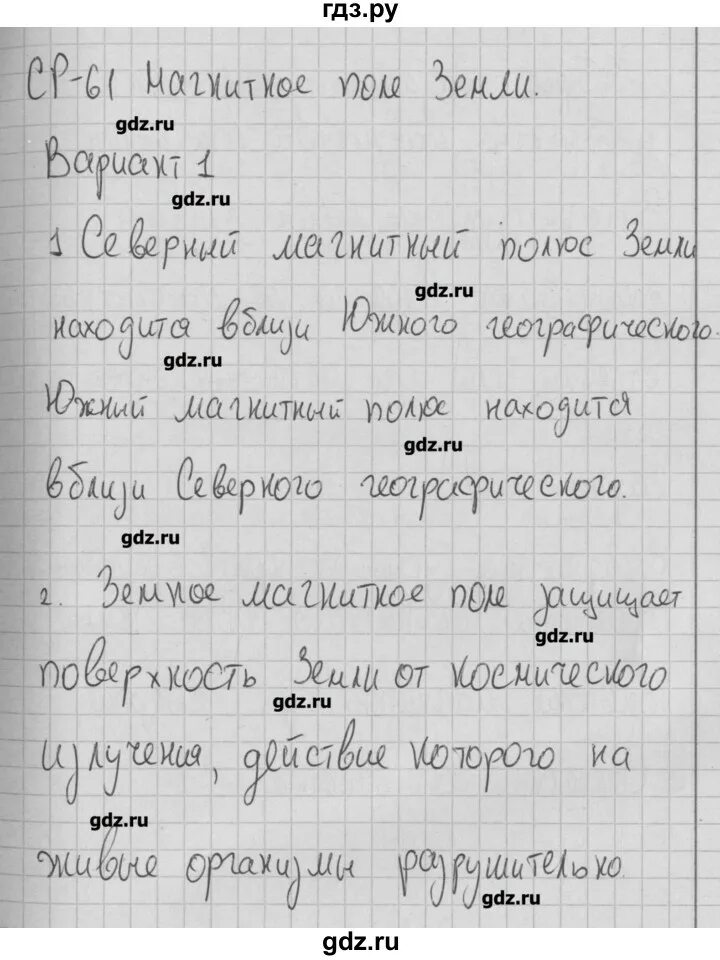 гдз.ру
СР-61 Магнитное поле Земли.
gdz.ru
Вариант 1
gdz.ru
1 Северный магнитный полюс Земли
gdz.ru
находится вблизи Южного географического.
gdz.ru
Южний магнитный полюс находится
gdz.ru
вблизи Северного географического.
gdz.ru
2. Земное магнитное поле защищает
gdz.ru
поверхность Земли от космического
gdz.ru
излучения, действие которого на
gdz.ru
живые организмы разрушительно.
gdz.ru
gdz.ru